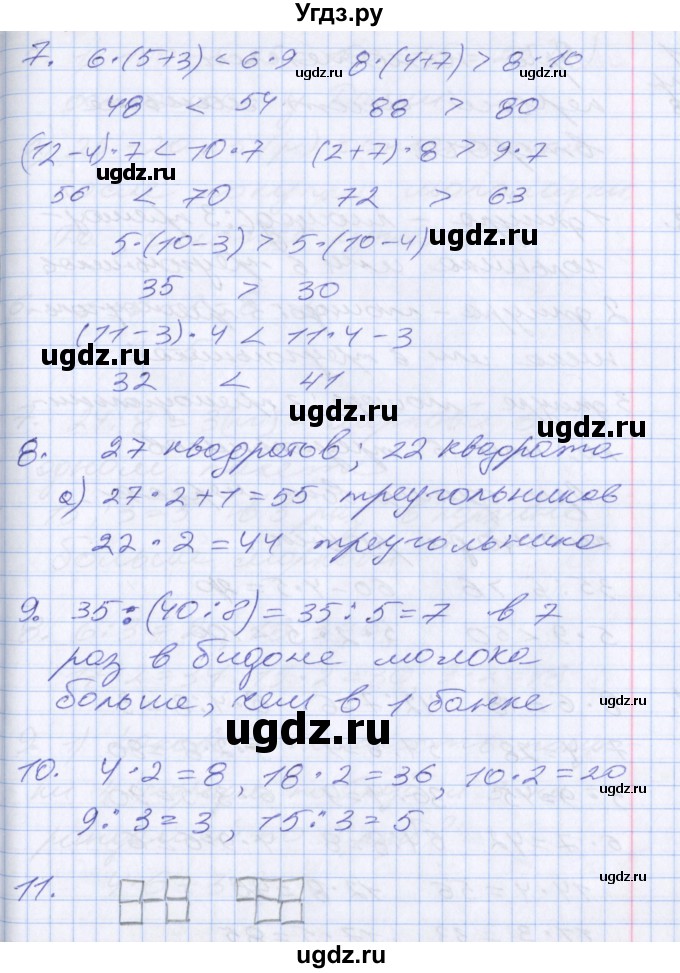 Угдз.ру
7. 6·(5+3) < 6·9 8·(4+7) > 8·10
ugdz.ru ugdz.ru
48 < 54 88 > 80
(12-4)·7 < 10·7 (2+7)·8 > 9·7
ugdz.ru
56 < 70 72 > 63
5·(10-3) > 5·(10-4)
ugdz.ru
35 > 30
(11-3)·4 < 11·4-3
ugdz.ru
32 < 41
ugdz.ru
8. 27 квадратов; 22 квадрата
а) 27·2+1=55 треугольников
22·2=44 треугольника
9. 35:(40:8)=35:5=7 в 7
раз в бидоне молока
больше, чем в 1 банке
ugdz.ru ugdz.ru
10. 4·2=8, 18·2=36, 10·2=20
9:3=3, 15:3=5
11.
ugdz.ru